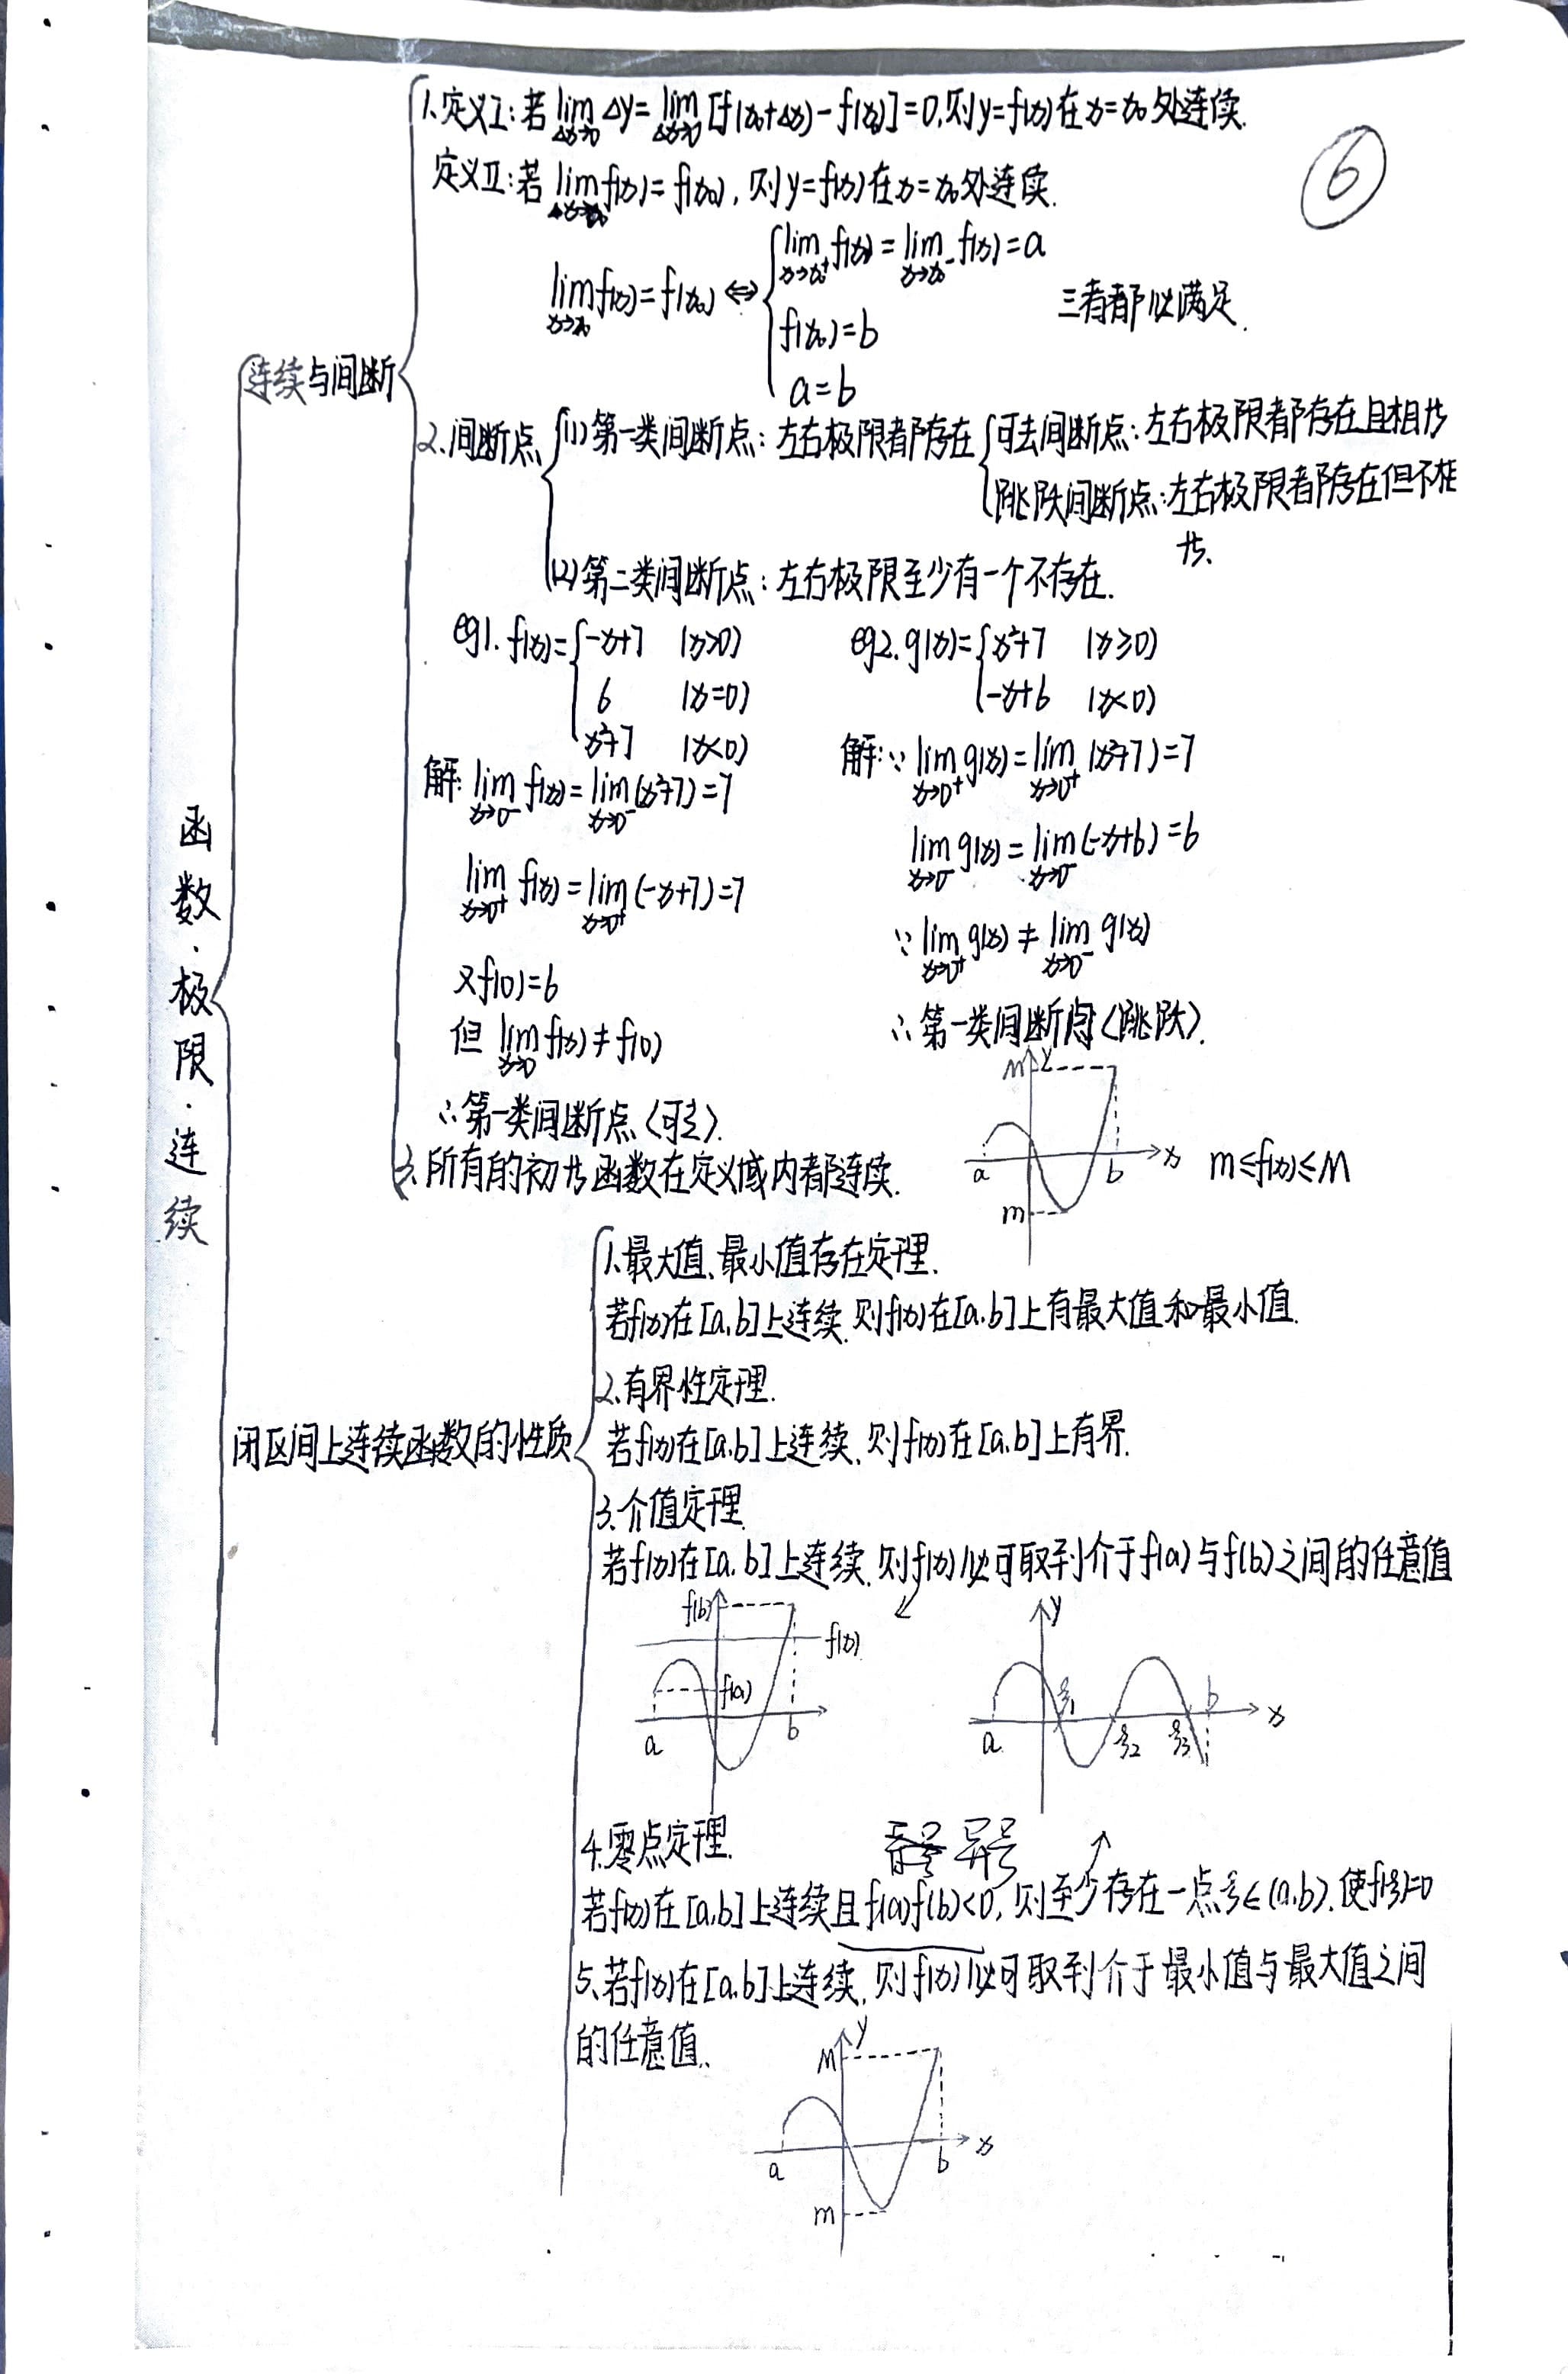 ⑥
函数·极限·连续
连续与间断
1.定义I:若lim Δx→0 Δy=lim Δx→0 [f(x₀+Δx)-f(x₀)]=0,则y=f(x)在x=x₀处连续.
定义II:若lim x→x₀ f(x)=f(x₀),则y=f(x)在x=x₀处连续.
lim x→x₀ f(x)=f(x₀)⇔{lim x→x₀⁺ f(x)=lim x→x₀⁻ f(x)=a
f(x₀)=b
a=b
三者都必满足.
2.间断点
(1)第一类间断点:左右极限都存在
可去间断点:左右极限都存在且相等
跳跃间断点:左右极限都存在但不相
等.
(2)第二类间断点:左右极限至少有一个不存在.
eg1. f(x)={-x+7 (x>0)
6 (x=0)
x²+7 (x<0)
解:lim x→0⁻ f(x)=lim x→0⁻ (x²+7)=7
lim x→0⁺ f(x)=lim x→0⁺ (-x+7)=7
又f(0)=6
但 lim x→0 f(x)≠f(0)
∴第一类间断点(可去).
eg2. g(x)={x²+7 (x≥0)
-x+6 (x<0)
解:∵lim x→0⁺ g(x)=lim x→0⁺ (x²+7)=7
lim x→0⁻ g(x)=lim x→0⁻ (-x+6)=6
∵lim x→0⁺ g(x)≠lim x→0⁻ g(x)
∴第一类间断点(跳跃).
3.所有的初等函数在定义域内都连续.
M y
a b x
m
m≤f(x)≤M
闭区间上连续函数的性质
1.最大值、最小值存在定理.
若f(x)在[a,b]上连续.则f(x)在[a,b]上有最大值和最小值.
2.有界性定理.
若f(x)在[a,b]上连续,则f(x)在[a,b]上有界.
3.介值定理
若f(x)在[a,b]上连续.则f(x)必可取到介于f(a)与f(b)之间的任意值
f(b)
f(x)
f(a)
a b
y
ξ₁ b x
a ξ₂ ξ₃
4.零点定理.
异号
若f(x)在[a,b]上连续且f(a)f(b)<0,则至少存在一点ξ∈(a,b).使f(ξ)=0
5.若f(x)在[a,b]上连续,则f(x)必可取到介于最小值与最大值之间
的任意值.
M y
a b x
m